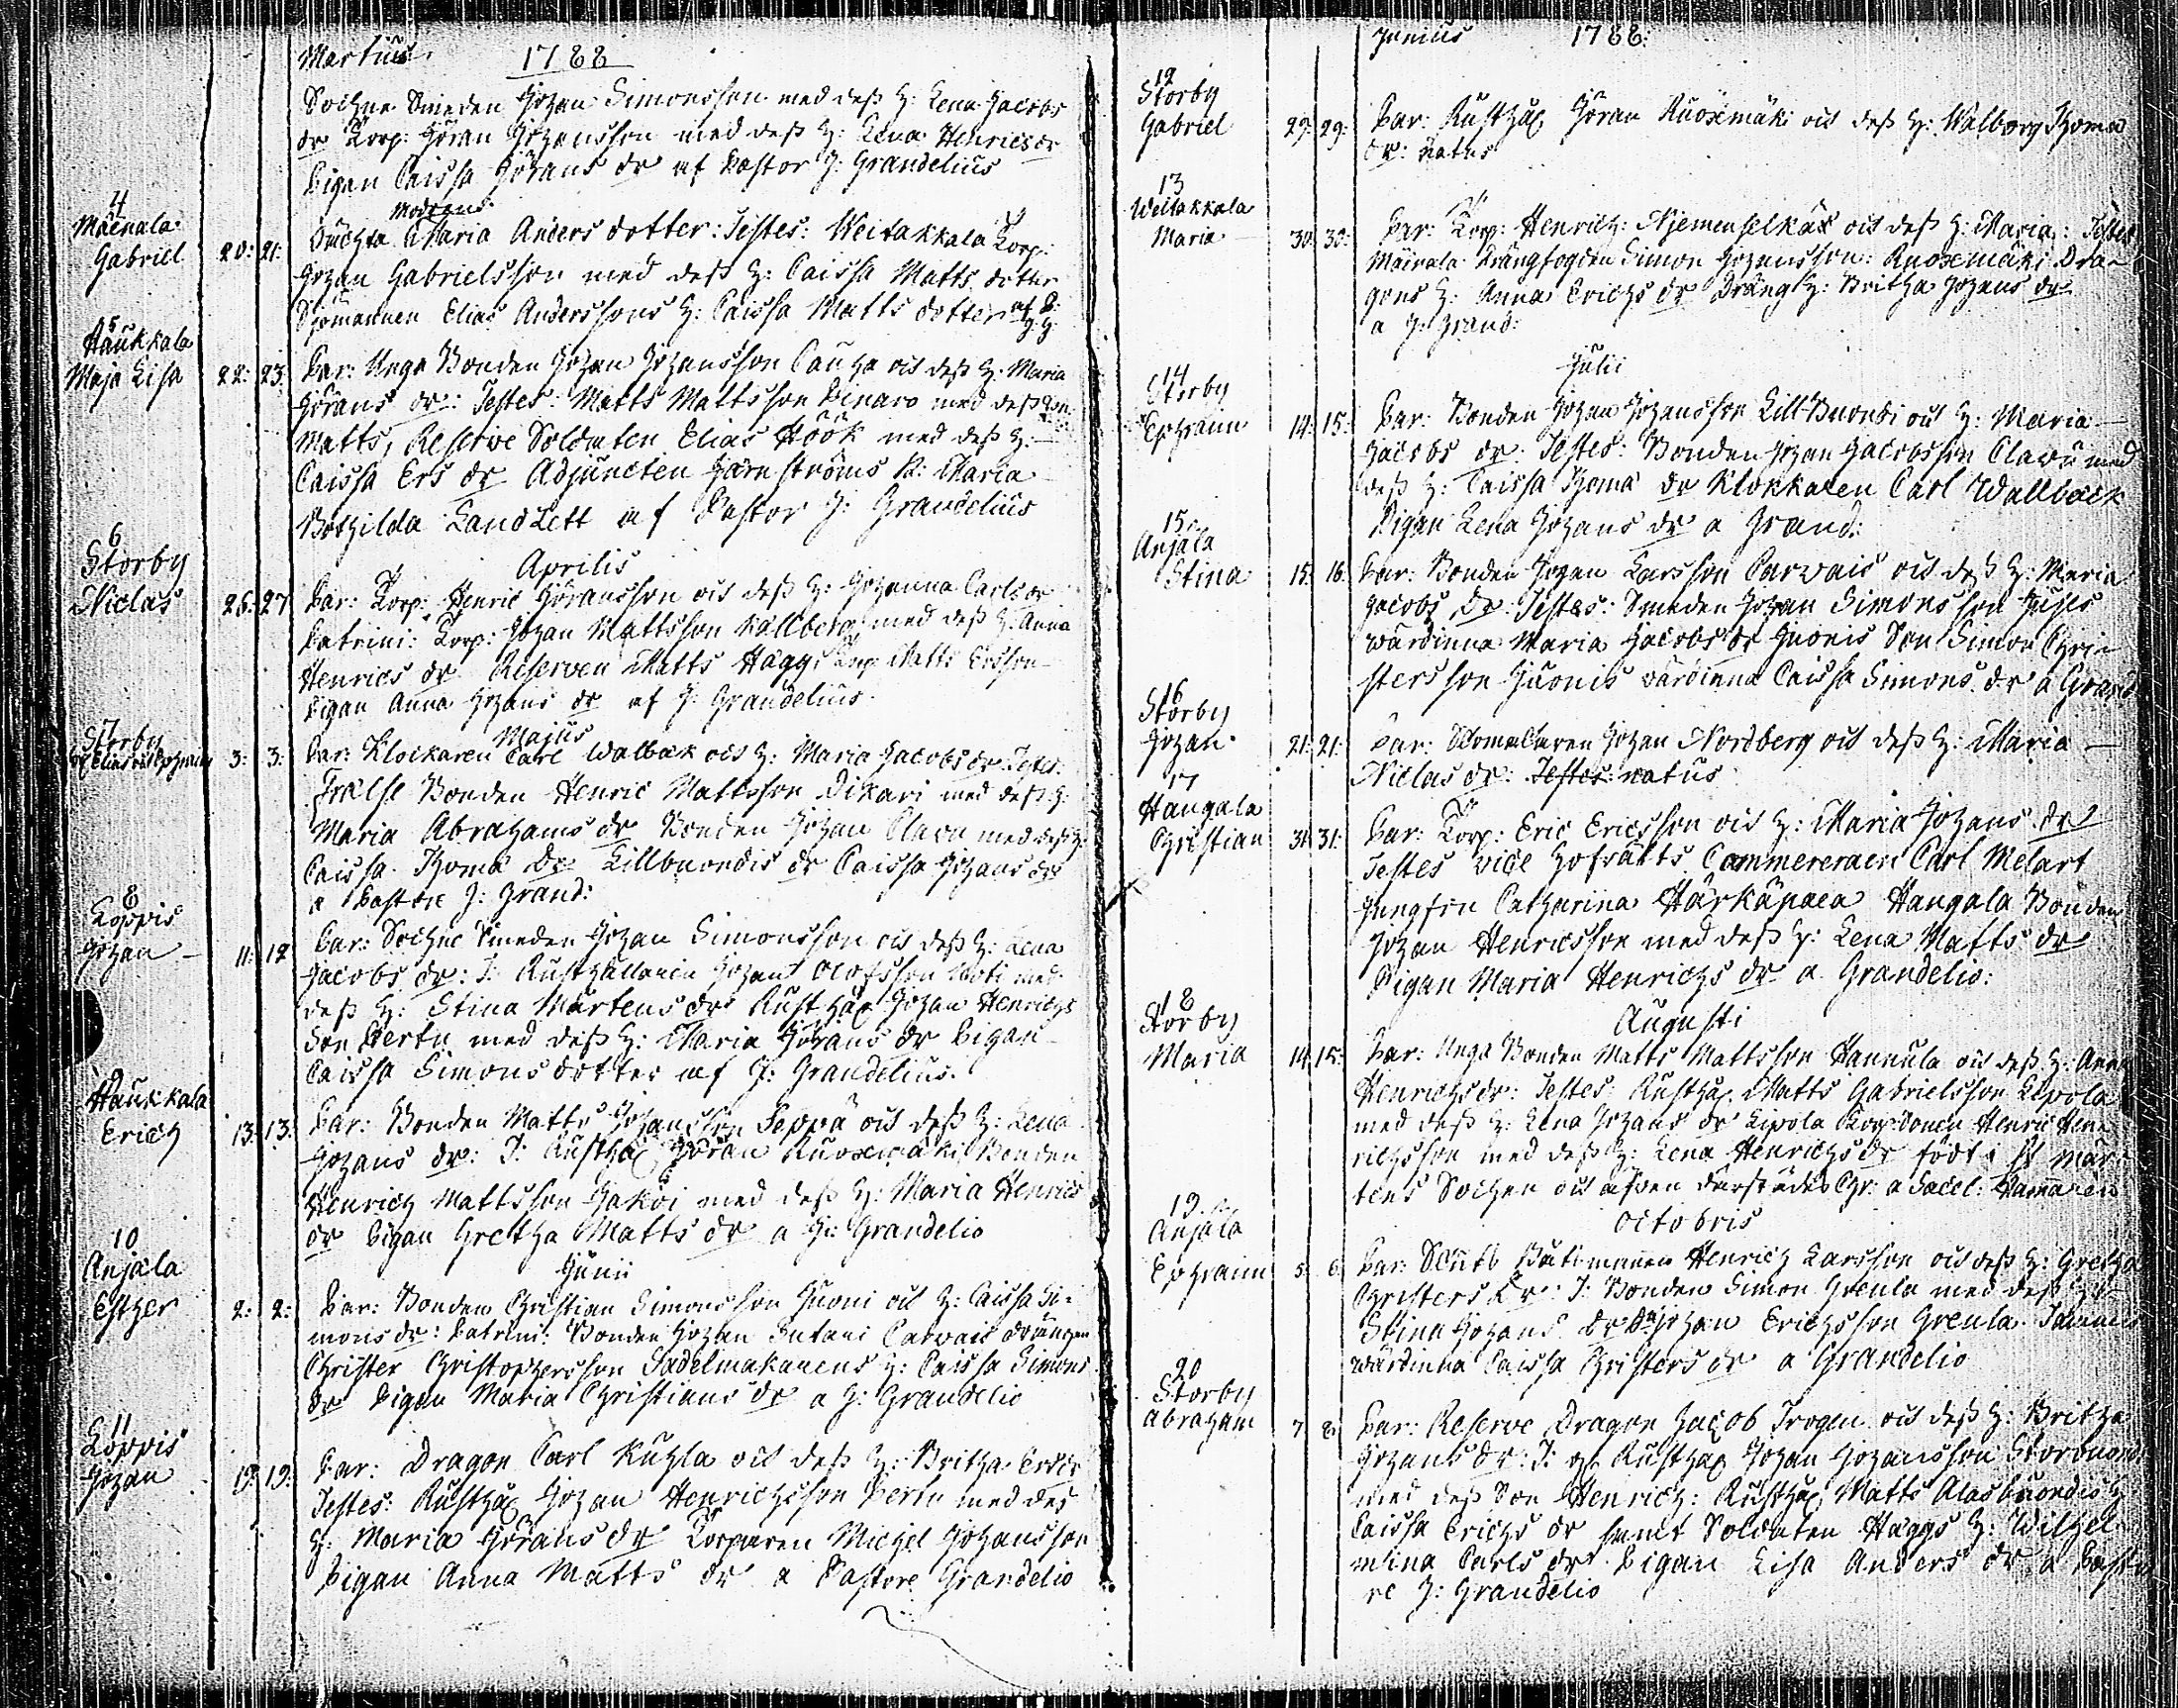 Martius 1788
Sochne Smeden Johan Simonsson med dess H: Lena Jacobs
dr Korp: Göran Johansson med dess H: Lena Henricsdr
Pigan Caissa Görans dr af Pastor J: Grandelius
4
Mäenala
Gabriel 20: 21:
Modren:
Maria Anders dotter: Testes: Weitakkala Torp:
Johan Gabrielsson med dess H: Caissa Matts dotter
Elias Anderssons H: Caissa Matts dotter af P:
J: G:
5
Haukkala
Maja Lisa 22: 23:
Par: Unga Bonden Johan Johansson Cauha och dess H: Maria
Görans dr: Testes: Matts Mattsson Pinaro med dess Son
Matts, Reserve Soldaten Elias Höök med dess H:
Caissa Ers dr Adjuncten Härnströms P: Maria
Bothilda Landtett af Pastor J: Grandelius
Aprilis
6
Storby
Niclas 26: 27
Par: Korp: Henric Göransson och dess H: Johanna Carlsdr
Patrini: Korp: Johan Mattsson Källberg med dess H: Anna
Henrics dr Reserven Matts Hägg Matts Ersson
Pigan Anna Johans dr af J: Grandelius
Majus
7
Storby
Elias och Ephraim 3: 3:
Par: Klockaren Carl Walbäck och H: Maria Jacobsdr Testes:
Frälse Bonden Henric Mattsson Dikari med dess H:
Maria Abrahams dr Bonden Johan Clavu med dess H:
Caissa Thoma dr Lillbuondis dr Caissa Johans dr
a Pastore J: Grand:
8
Loppis
Johan 11: 12
Par: Sochne Smeden Johan Simonsson och dess H: Lena
Jacobs dr: T: Rusthållaren Johan Olofsson med
dess H: Stina Mårtens dr Rusthål: Johan Henrichs
Son Pertu med dess H: Maria Görans dr Pigan
Caissa Simons dotter af J: Grandelius.
9
Haukkala
Erich 13: 13:
Par: Bonden Matts Johansson Seppä och dess H: Lena
Johans dr: T: Rusthål: Göran Ruoxemäki Bonden
Henrich Mattsson Jaköi med dess H: Maria Henrics
dr Pigan Gretha Matts dr a J: Grandelio
Junii
10
Anjala
Esther 2: 2:
Par: Bonden Christian Simonsson Huoni och H: Caissa Si-
mons dr: Patrini: Bonden Johan Sutari Carvais drängen
Christer Christophersson Sadelmakarens H: Caissa Simons
dr Pigan Maria Christians dr a J: Grandelio
11
Loppis
Johan 19: 19:
Par: Dragon Carl Kuhla och dess H: Britha Ersdr
Testes: Rusthål: Johan Henrichsson Pertu med des
H: Maria Görans dr Torparen Michel Johansson
Pigan Anna Matts dr a Pastore Grandelio
Junius 1788:
12
Storby
Gabriel 29: 29:
Par: Rusthål: Göran Ruoxemäki och dess H: Walborg Thoma
dr: natus
13
Weitakkala
Maria 30: 30:
Par: Torp: Henrich: Niemenselkäs och dess H: Maria: Testes
Mäenala Drängfogden Simon Johansson: Ruoxemäki Dra-
gons H: Anna Erichs dr Dräng H: Britha Johans dr
a J: Grand:
Julii
14
Storby
Ephraim 14: 15:
Par: Bonden Johan Johansson Lill-Buondi och H: Maria
Jacobs dr: Testes: Bonden Johan Jacobsson Clavu med
dess H: Caissa Thoma dr Klokkaren Carl Wallbäck
Pigan Lena Johans dr a Grand:
15
Anjala
Stina 15: 16:
Par: Bonden Johan Larsson Carvais och dess H: Maria
Jacobs dr: Testes: Smeden Johan Simonsson
wärdinna Maria Jacobs dr Huonis Son Simon Chri-
stersson Huonis wärdinna Caissa Simons dr a Grand:
16
Storby
Johan 21: 21:
Par: Johan Nordberg och dess H: Maria
Niclas dr: Testes: natus
17
Hangala
Christian 31: 31:
Par: Torp: Eric Ericsson och H: Maria Johans dr
Testes Vice Hofrätts Commereraren Carl Melart
Jungfru Catharina Härkäpaea Hangala Bonden
Johan Henricsson med dess H: Lena Matts dr
Pigan Maria Henrichs dr a Grandelio:
Augusti
18
Storby
Maria 14 15:
Par: Unga Bonden Matts Mattsson Hannula och dess H: Anna
Henrichsdr: Testes: Rusthål: Matts Gabrielsson Lipola
med dess H: Lena Johans dr Lipola Henric Hen-
richsson med dess H: Lena Henrichsdr födt i St Mår-
tens Sochen och af därstädes Chr: a Sacel: Hammaren
Octobris
19
Anjala
Ephraim 5: 6:
Par: Båtsmannen Henrich Larsson och dess H: Gretha
Christers dr: T: Bonden Simon Greula med dess H:
Stina Johans dr Johan Erichsson Greula
wärdinna Caissa Christers dr a Grandelio
20
Storby
Abraham 7 8
Par: Reserve Dragon Jacob Trogen och dess H: Britha
Johans dr: T: Rusthål: Johan Johansson Storbuondi
med dess Son Henrich: Rusthål: Matts Alasbuondis H:
Caissa Erichs dr samt Soldaten Häggs H: Wilhel-
mina Carls dr Pigan Lisa Anders dr a Pasto
re J: Grandelio